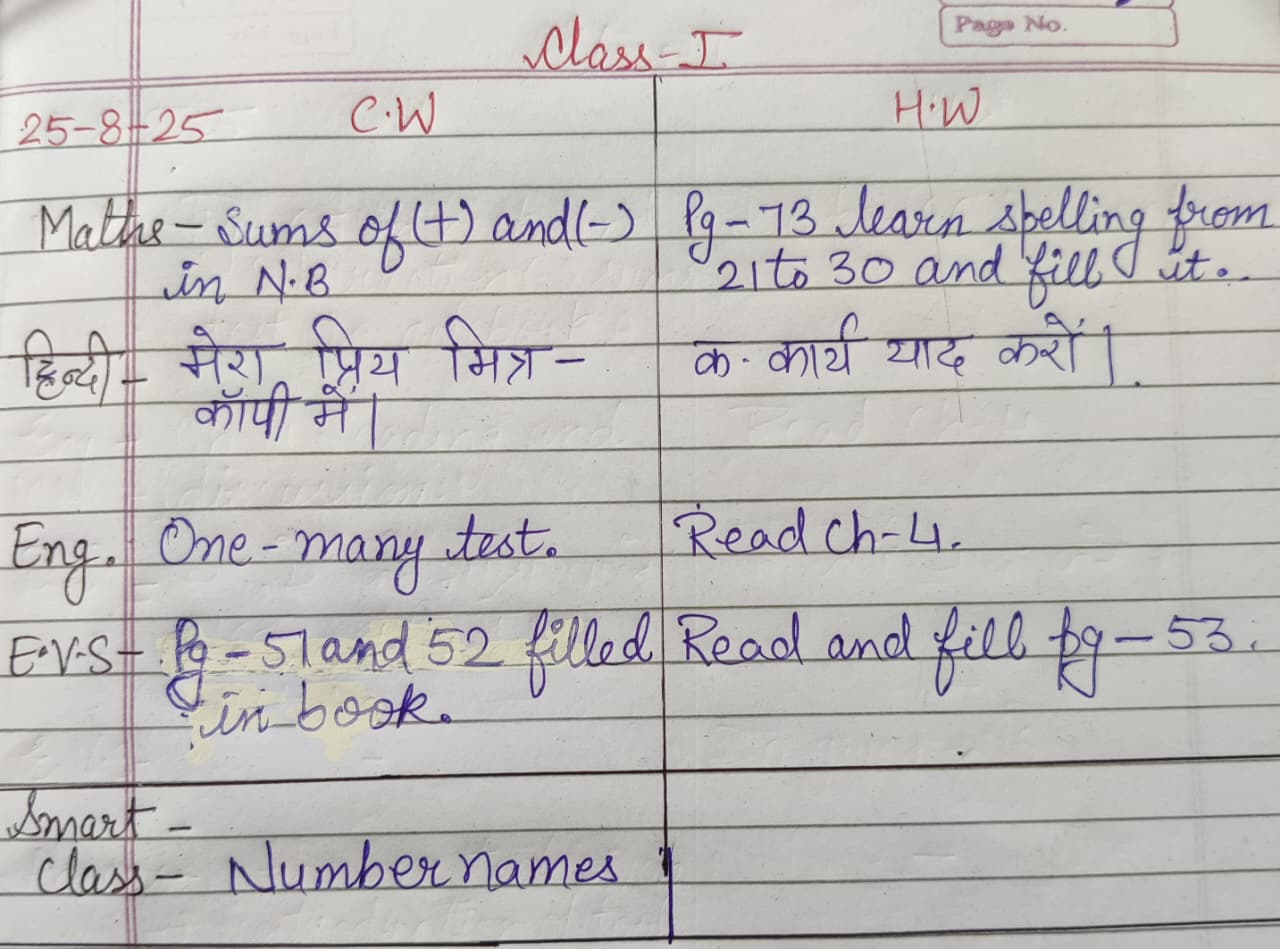 Page No.
Class-I.
25-8-25 C.W H.W
Maths - Sums of (+) and (-) Pg-73 learn spelling from
in N.B 21 to 30 and fill it.
हिन्दी - मेरा प्रिय मित्र - क. कार्य याद करों।
कॉपी में।
Eng. One-many test. Read Ch-4.
E.V.S - Pg-51 and 52 filled Read and fill pg-53.
in book.
Smart -
Class - Number names